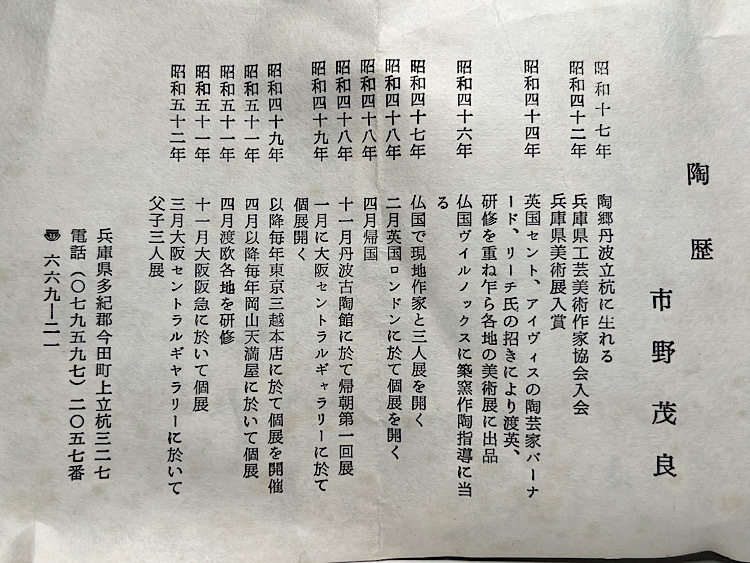 陶歴
市野茂良
昭和十七年 陶郷丹波立杭に生れる
昭和四十二年 兵庫県工芸美術作家協会入会
兵庫県美術展入賞
昭和四十四年 英国セント、アイヴィスの陶芸家バーナ
ード、リーチ氏の招きにより渡英、
研修を重ね乍ら各地の美術展に出品
昭和四十六年 仏国ヴイルノックスに築窯作陶指導に当
る
昭和四十七年 仏国で現地作家と三人展を開く
昭和四十八年 二月英国ロンドンに於て個展を開く
昭和四十八年 四月帰国
昭和四十八年 十一月丹波古陶館に於て帰朝第一回展
昭和四十九年 一月に大阪セントラルギャラリーに於て
個展開く
昭和四十九年 以降毎年東京三越本店に於て個展を開催
昭和五十一年 四月以降毎年岡山天満屋に於いて個展
昭和五十一年 四月渡欧各地を研修
昭和五十一年 十一月大阪阪急に於いて個展
昭和五十二年 三月大阪セントラルギャラリーに於いて
父子三人展
兵庫県多紀郡今田町上立杭三二七
電話(〇七九五九七)二〇五七番
〠 六六九ー二一